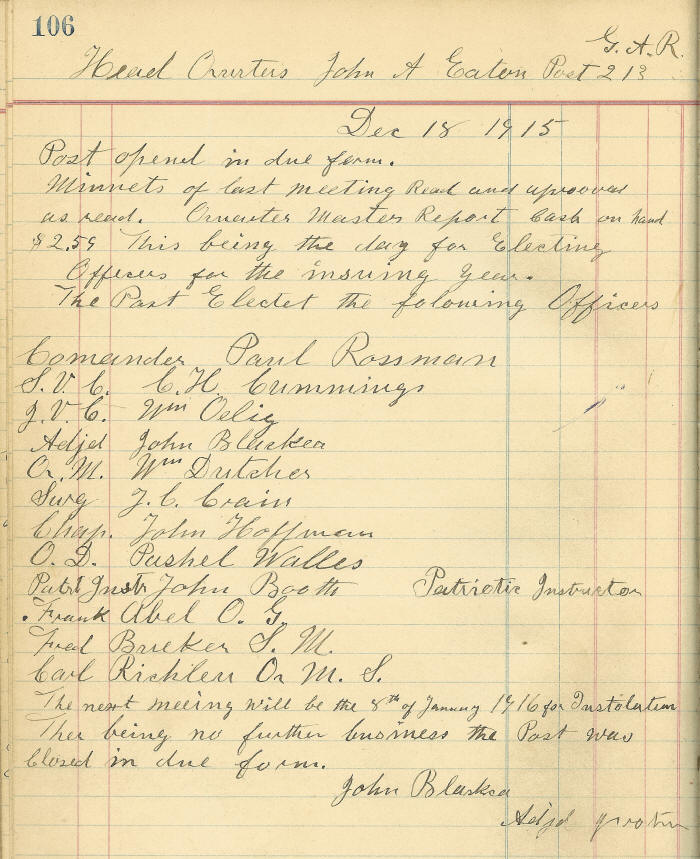 106
G. A. R.
Head Qrurters John A Eaton Post 213
Dec 18 1915
Post opend in due form.
Minnets of last meeting Read and aprooved
as read. Qruarter Master Report Cash on hand
$2.59 This being the day for Electing
Officers for the insuring Year.
The Post Electet the folowing Officers
Comander Paul Rossman
S. V. C. C. H. Cummings
J. V. C. Wm Oelig
Adjd John Blaskea
Qr. M. Wm Dutcher
Surg J. C. Crain
Chap. John Hoffman
O. D. Pashel Walles
Patrt Instr John Booth Patriotic Instructor
Frank Abel O. G.
Fred Brueker S. M.
Carl Richlen Qr M. S.
The next meeing will be the 8th of January 1916 for Instolation
Ther being no further business the Post was
Closed in due form.
John Blaskea
Adjd